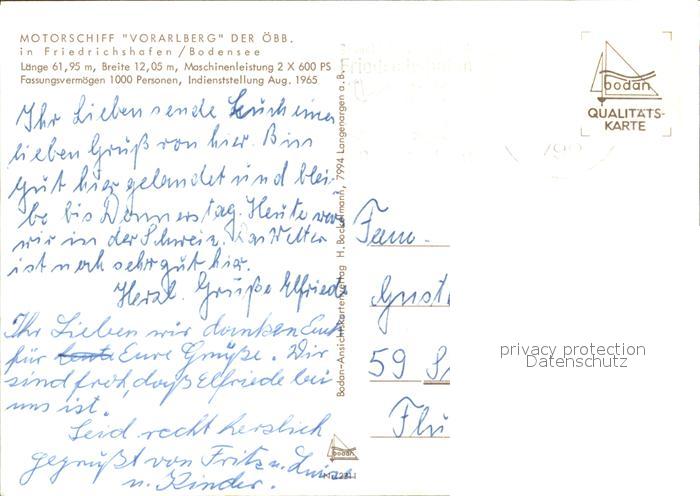 MOTORSCHIFF "VORARLBERG" DER ÖBB.
in Friedrichshafen / Bodensee
Länge 61,95 m, Breite 12,05 m, Maschinenleistung 2 X 600 PS
Fassungsvermögen 1000 Personen, Indienststellung Aug. 1965
Ihr Lieben sende Euch einen
lieben Gruß von hier. Bin
gut hier gelandet und blei-
be bis Donnerstag. Heute waren
wir in der Schweiz. Das Wetter
ist noch sehr gut hier.
Herzl. Grüße Elfriede
Ihr Lieben wir danken Euch
für Eure Grüße. Wir
sind froh, daß Elfriede bei
uns ist.
Seid recht herzlich
gegrüßt von Fritz u. Luise
u. Kinder.
Bodan-Ansichtskartenverlag H. Bockelmann, 7994 Langenargen a. B.
bodan
bodan
QUALITÄTS-
KARTE
Fam.
Gust
59 S
Flu
privacy protection
Datenschutz